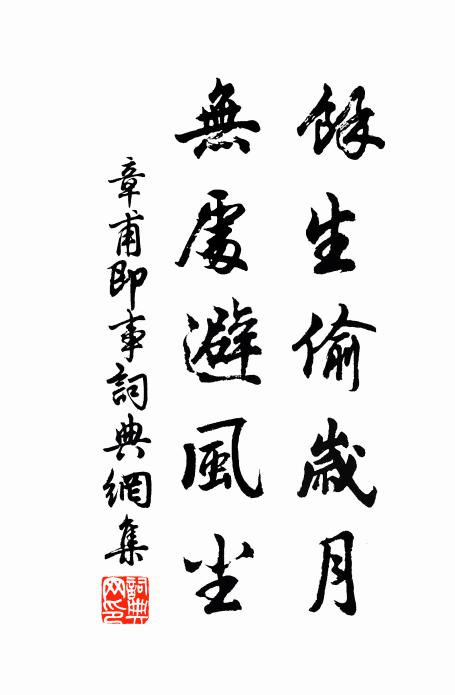 餘生偷歲月
無處避風尘
章甫即事詞典網集
詞典
网印